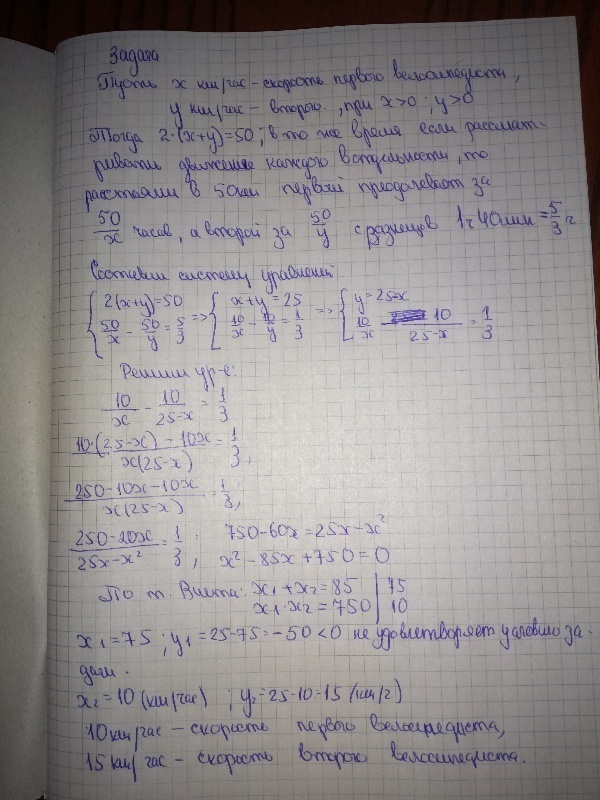 Задача
Пусть x км/час – скорость первого велосипедиста,
y км/час – второго, при x>0; y>0
Тогда 2·(x+y)=50; в то же время если рассмат-
ривать движение каждого в отдельности, то
расстояние в 50км первый преодолевает за
50/x часов, а второй за 50/y с разницей 1ч40мин = 5/3 ч
Составим систему уравнений
{ 2(x+y)=50 => { x+y=25 => { y=25-x
50/x - 50/y = 5/3 10/x - 10/y = 1/3 10/x 10/25-x = 1/3
Решим ур-е:
10/x - 10/25-x = 1/3
10·(25-x) - 10x/x(25-x) = 1/3,
250-10x-10x/x(25-x) = 1/3,
250-20x/25x-x² = 1/3, 750-60x=25x-x²
x²-85x+750=0
По т. Виета: x₁+x₂=85 | 75
x₁·x₂=750 | 10
x₁=75; y₁=25-75=-50<0 не удовлетворяет условию за-
дачи.
x₂=10 (км/час); y₂=25-10=15 (км/ч)
10 км/час – скорость первого велосипедиста,
15 км/час – скорость второго велосипедиста.